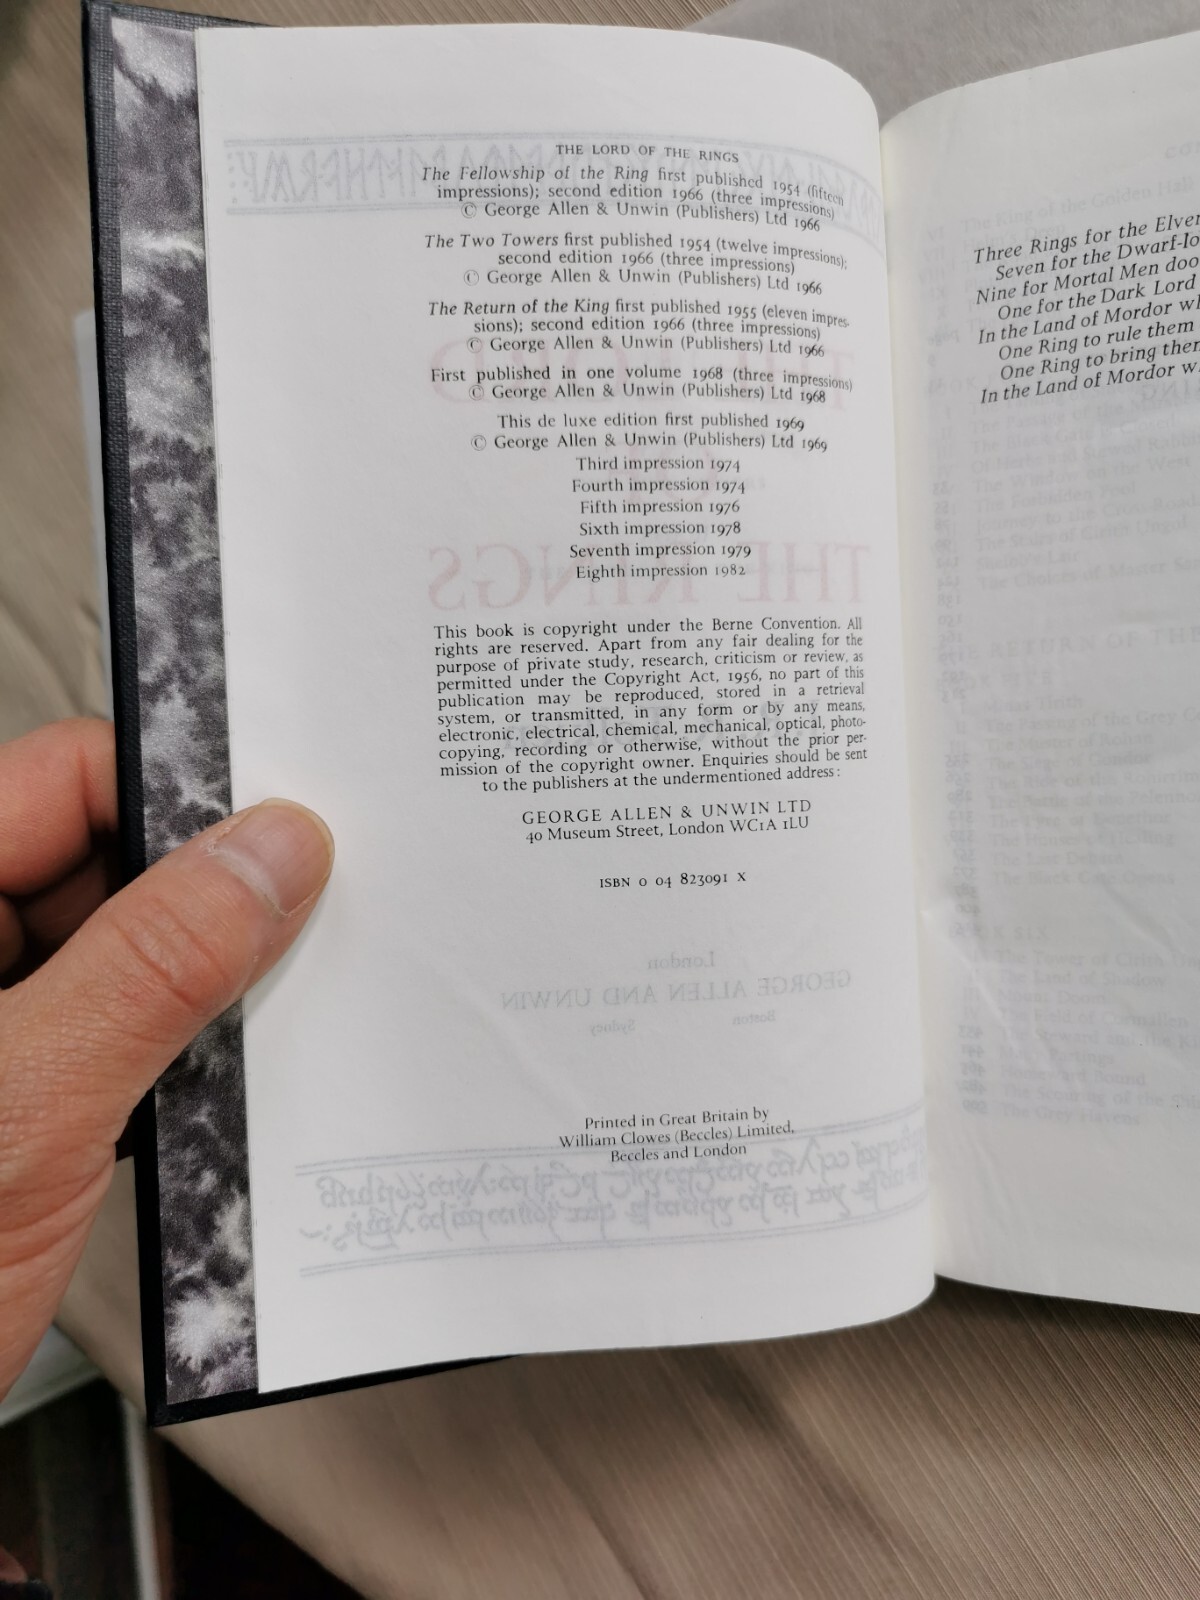 THE LORD OF THE RINGS
The Fellowship of the Ring first published 1954 (fifteen
impressions); second edition 1966 (three impressions)
© George Allen & Unwin (Publishers) Ltd 1966
The Two Towers first published 1954 (twelve impressions);
second edition 1966 (three impressions)
© George Allen & Unwin (Publishers) Ltd 1966
The Return of the King first published 1955 (eleven impres-
sions); second edition 1966 (three impressions)
© George Allen & Unwin (Publishers) Ltd 1966
First published in one volume 1968 (three impressions)
© George Allen & Unwin (Publishers) Ltd 1968
This de luxe edition first published 1969
© George Allen & Unwin (Publishers) Ltd 1969
Third impression 1974
Fourth impression 1974
Fifth impression 1976
Sixth impression 1978
Seventh impression 1979
Eighth impression 1982
This book is copyright under the Berne Convention. All
rights are reserved. Apart from any fair dealing for the
purpose of private study, research, criticism or review, as
permitted under the Copyright Act, 1956, no part of this
publication may be reproduced, stored in a retrieval
system, or transmitted, in any form or by any means,
electronic, electrical, chemical, mechanical, optical, photo-
copying, recording or otherwise, without the prior per-
mission of the copyright owner. Enquiries should be sent
to the publishers at the undermentioned address:
GEORGE ALLEN & UNWIN LTD
40 Museum Street, London WC1A 1LU
ISBN 0 04 823091 X
London
GEORGE ALLEN AND UNWIN
Boston Sydney
Printed in Great Britain by
William Clowes (Beccles) Limited,
Beccles and London
Three Rings for the Elven
Seven for the Dwarf-lo
Nine for Mortal Men doo
One for the Dark Lord
In the Land of Mordor wh
One Ring to rule them
One Ring to bring them
In the Land of Mordor wh